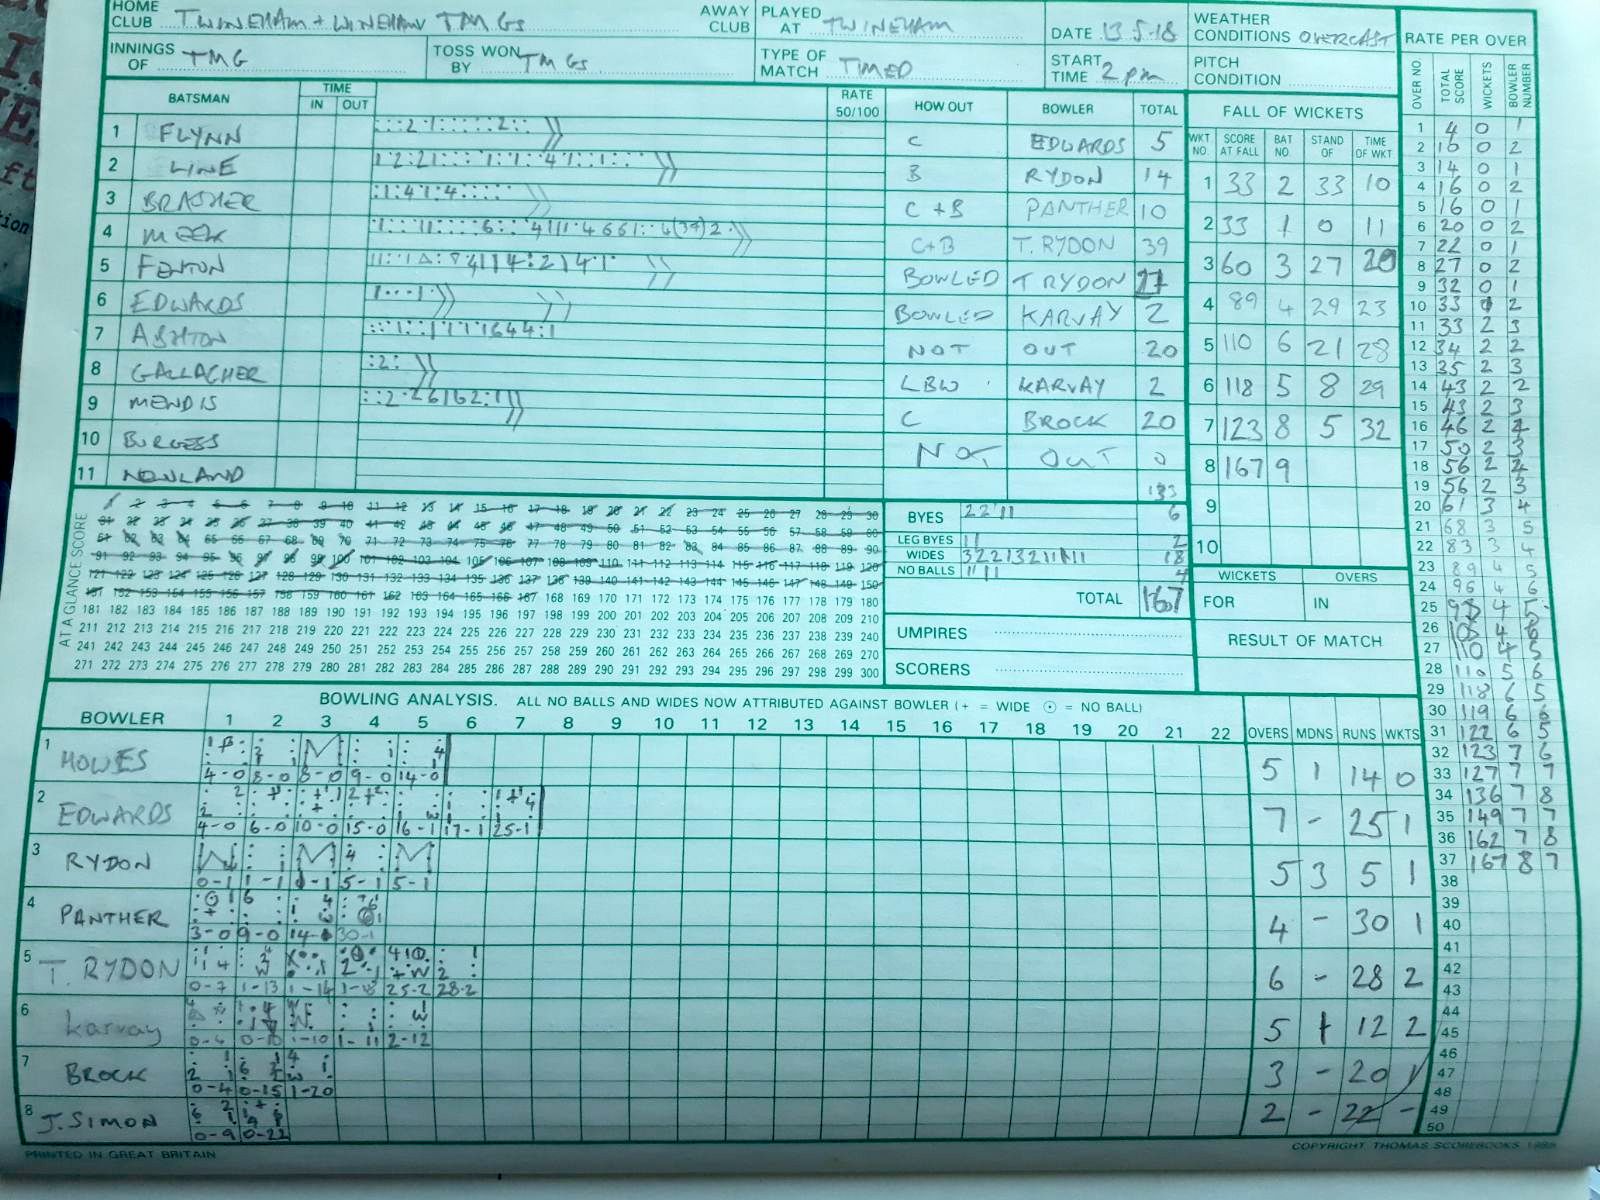 HOME CLUB TWINEHAM + WINEHAM TMGS AWAY CLUB PLAYED AT TWINEHAM DATE 13.5.18 WEATHER CONDITIONS OVERCAST RATE PER OVER
INNINGS OF TMG TOSS WON BY TMGS TYPE OF MATCH TIMED START TIME 2 pm PITCH CONDITION
BATSMAN TIME IN OUT RATE 50/100 HOW OUT BOWLER TOTAL
1 FLYNN C EDWARDS 5
2 LINE B RYDON 14
3 BRASHER C + B PANTHER 10
4 MEEK C+B T. RYDON 39
5 FENTON BOWLED T RYDON
6 EDWARDS BOWLED KARVAY 2
7 ASHTON NOT OUT 20
8 GALLAGHER LBW KARVAY 2
9 MENDIS C BROCK 20
10 BURGESS NOT OUT 0
11 NEWLAND
133
FALL OF WICKETS
WKT NO. SCORE AT FALL BAT NO. STAND OF TIME OF WKT
1 33 2 33 10
2 33 1 0 11
3 60 3 27 20
4 89 4 29 23
5 110 6 21 28
6 118 5 8 29
7 123 8 5 32
8 167 9
9
10
WICKETS OVERS
FOR IN
RESULT OF MATCH
AT A GLANCE SCORE
1 2 3 4 5 6 7 8 9 10 11 12 13 14 15 16 17 18 19 20 21 22 23 24 25 26 27 28 29 30
31 32 33 34 35 36 37 38 39 40 41 42 43 44 45 46 47 48 49 50 51 52 53 54 55 56 57 58 59 60
61 62 63 64 65 66 67 68 69 70 71 72 73 74 75 76 77 78 79 80 81 82 83 84 85 86 87 88 89 90
91 92 93 94 95 96 97 98 99 100 101 102 103 104 105 106 107 108 109 110 111 112 113 114 115 116 117 118 119 120
121 122 123 124 125 126 127 128 129 130 131 132 133 134 135 136 137 138 139 140 141 142 143 144 145 146 147 148 149 150
151 152 153 154 155 156 157 158 159 160 161 162 163 164 165 166 167 168 169 170 171 172 173 174 175 176 177 178 179 180
181 182 183 184 185 186 187 188 189 190 191 192 193 194 195 196 197 198 199 200 201 202 203 204 205 206 207 208 209 210
211 212 213 214 215 216 217 218 219 220 221 222 223 224 225 226 227 228 229 230 231 232 233 234 235 236 237 238 239 240
241 242 243 244 245 246 247 248 249 250 251 252 253 254 255 256 257 258 259 260 261 262 263 264 265 266 267 268 269 270
271 272 273 274 275 276 277 278 279 280 281 282 283 284 285 286 287 288 289 290 291 292 293 294 295 296 297 298 299 300
BYES 2 2 1 1 6
LEG BYES 1 1 2
WIDES 18
NO BALLS 1 1 1 1 4
TOTAL 167
UMPIRES
SCORERS
BOWLING ANALYSIS. ALL NO BALLS AND WIDES NOW ATTRIBUTED AGAINST BOWLER (+ = WIDE ⊙ = NO BALL)
BOWLER 1 2 3 4 5 6 7 8 9 10 11 12 13 14 15 16 17 18 19 20 21 22 OVERS MDNS RUNS WKTS
1 HOWES 4-0 8-0 8-0 9-0 14-0 5 1 14 0
2 EDWARDS 4-0 6-0 10-0 15-0 16-1 17-1 25-1 7 - 25 1
3 RYDON 0-1 1-1 1-1 5-1 5-1 5 3 5 1
4 PANTHER 3-0 9-0 14-1 30-1 4 - 30 1
5 T. RYDON 0-7 1-13 1-14 1-18 25-2 28-2 6 - 28 2
6 Karvay 0-4 0-10 1-10 1-11 2-12 5 1 12 2
7 BROCK 0-4 0-15 1-20 3 - 20 1
8 J. SIMON 0-9 0-22 2 - 22 -
OVER NO. TOTAL SCORE WICKETS BOWLER NUMBER
1 4 0 1
2 10 0 2
3 14 0 1
4 16 0 2
5 16 0 1
6 20 0 2
7 22 0 1
8 27 0 2
9 32 0 1
10 33 1 2
11 33 2 3
12 34 2 2
13 35 2 3
14 43 2 2
15 43 2 3
16 46 2 2
17 50 2 3
18 56 2 2
19 56 2 3
20 61 3 4
21 68 3 5
22 83 3 4
23 89 4 5
24 96 4 6
25 98 4 5
26 108 4 6
27 110 4 5
28 110 5 6
29 118 6 5
30 119 6 6
31 122 6 5
32 123 7 6
33 127 7 7
34 136 7 8
35 149 7 7
36 162 7 8
37 167 8 7
38
39
40
41
42
43
44
45
46
47
48
49
50
PRINTED IN GREAT BRITAIN
COPYRIGHT THOMAS SCOREBOOKS